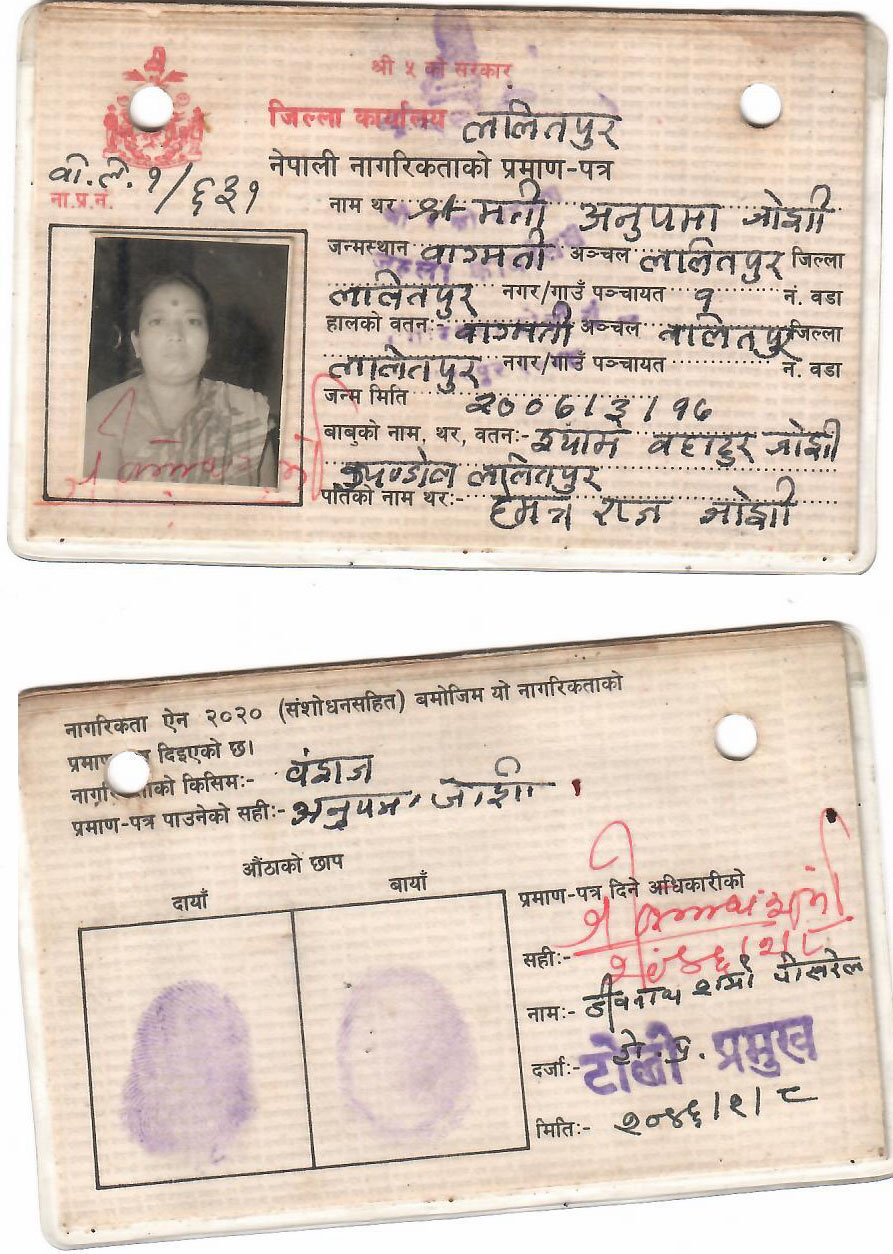 श्री ५ को सरकार
जिल्ला कार्यालय ललितपुर
नेपाली नागरिकताको प्रमाण-पत्र
वा.ल. १/६३१
ना.प्र.नं.
नाम थर श्रीमती अनुपमा जोशी
जन्मस्थान वाग्मती अञ्चल ललितपुर जिल्ला
ललितपुर नगर/गाउँ पञ्चायत १ नं. वडा
हालको वतन:- वाग्मती अञ्चल ललितपुर जिल्ला
ललितपुर नगर/गाउँ पञ्चायत नं. वडा
जन्म मिति २००६/३/१७
बाबुको नाम, थर, वतन:- श्याम वहादुर जोशी
कुपण्डोल ललितपुर
पतिको नाम थर:- हेमन्त राज जोशी
नागरिकता ऐन २०२० (संशोधनसहित) बमोजिम यो नागरिकताको
प्रमाण दिइएको छ।
नागरि ताको किसिम:- वंशज
प्रमाण-पत्र पाउनेको सही:- अनुपमा जोशी
औंठाको छाप
दायाँ बायाँ
प्रमाण-पत्र दिने अधिकारीको
सही:-
नाम:- जीवनाथ शर्मा पोखरेल
दर्जा:- टोली प्रमुख
मिति:- २०४६/१/८